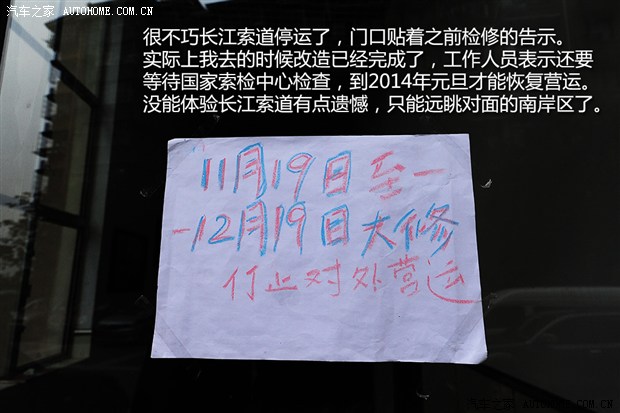 汽车之家 AUTOHOME.COM.CN
很不巧长江索道停运了，门口贴着之前检修的告示。
实际上我去的时候改造已经完成了，工作人员表示还要
等待国家索检中心检查，到2014年元旦才能恢复营运。
没能体验长江索道有点遗憾，只能远眺对面的南岸区了。
11月19日至一
-12月19日大修
仃止对外营运
汽车之家 AUTOHOME.COM.CN